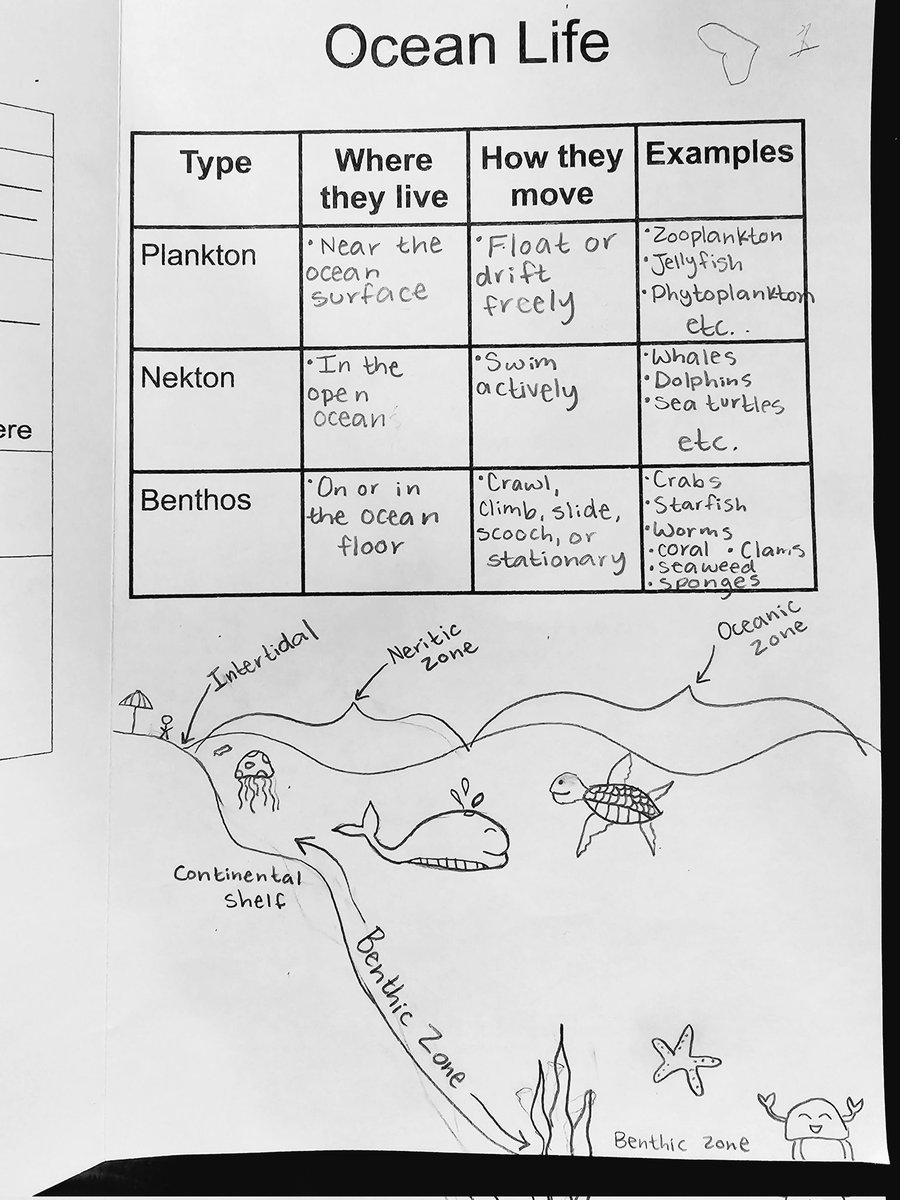 Ocean Life
1
Type
Where
they live
How they
move
Examples
Plankton
•Near the
ocean
surface
•Float or
drift
freely
•Zooplankton
•Jellyfish
•Phytoplankton
etc..
Nekton
•In the
open
ocean
•Swim
actively
•Whales
•Dolphins
•Sea turtles
etc.
Benthos
•On or in
the ocean
floor
•Crawl,
climb, slide,
scooch, or
stationary
•Crabs
•Starfish
•Worms
•coral •Clams
•seaweed
•sponges
ere
Intertidal
Neritic
zone
Oceanic
zone
Continental
shelf
Benthic Zone
Benthic zone